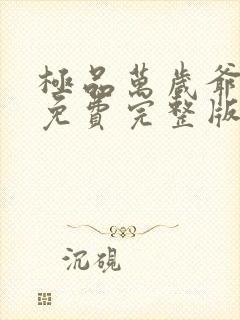 極品萬歲爺
免費完整版
沉硯